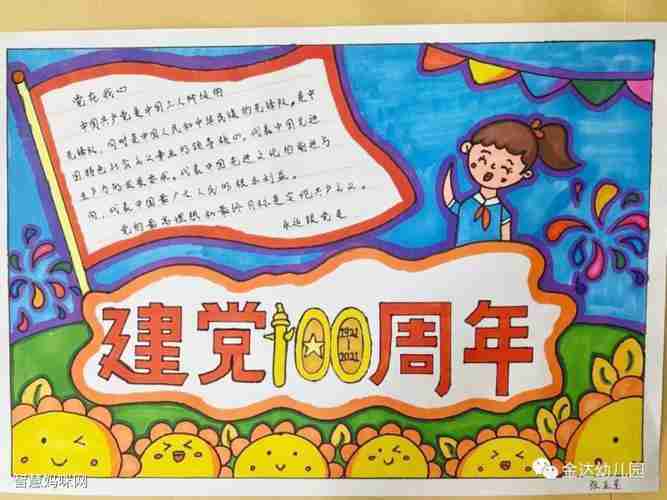 党在我心
中国共产党是中国工人阶级的
先锋队，同时是中国人民和中华民族的先锋队，是中
国特色社会主义事业的领导核心，代表中国先进
生产力的发展要求，代表中国先进文化的前进方
向，代表中国最广大人民的根本利益。
党的最高理想和最终目标是实现共产主义。
永远跟党走
建党100周年
1921
2021
智慧妈咪网
金达幼儿园